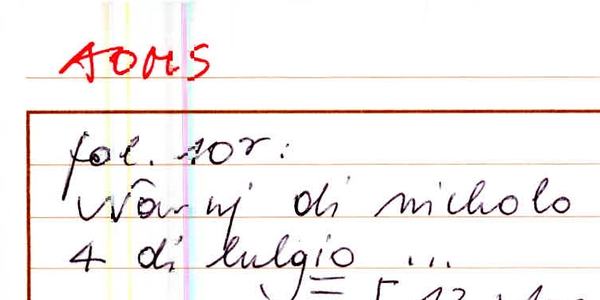 AOMS
fol. 10r:
di nicholo
4 di lulgio ...